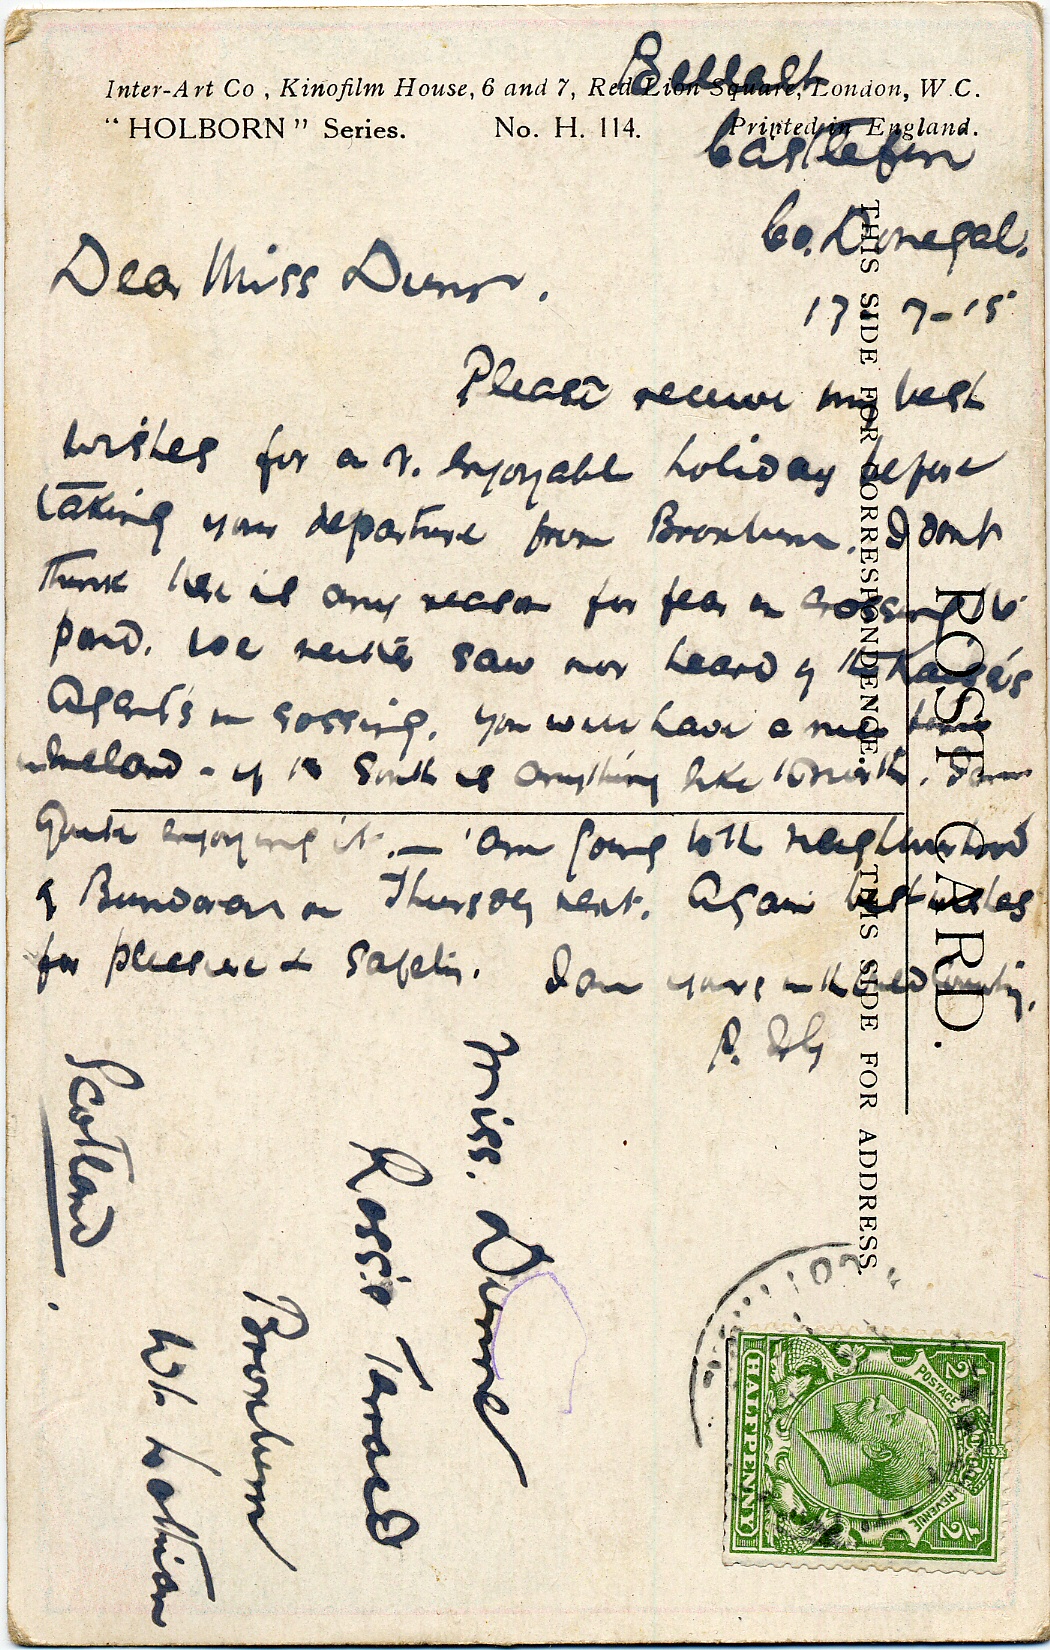 Inter-Art Co., Kinofilm House, 6 and 7, Red Lion Square, London, W.C.
"HOLBORN" Series. No. H. 114. Printed in England.
Castlefin
Co. Donegal.
17 7-15
Dear Miss Dunne.
Please receive my best
wishes for a v. enjoyable holiday before
taking your departure from Broxburn. I dont
think there is any reason for fear in crossing the
pond. We neither saw nor heard of the Kaiser's
Agents in crossing. You will have a nice time
in Ireland - if the South is anything like the North. I am
quite enjoying it. — am going to the neighbourhood
of Bundoran on Thursday next. Again best wishes
for pleasure & safety. I am yours in the Country.
POST CARD.
THIS SIDE FOR CORRESPONDENCE.
THIS SIDE FOR ADDRESS.
Miss. Dunne
Ross's Terrace
Broxburn
Wt. Lothian
Scotland.
POSTAGE
REVENUE
½ ½
HALFPENNY